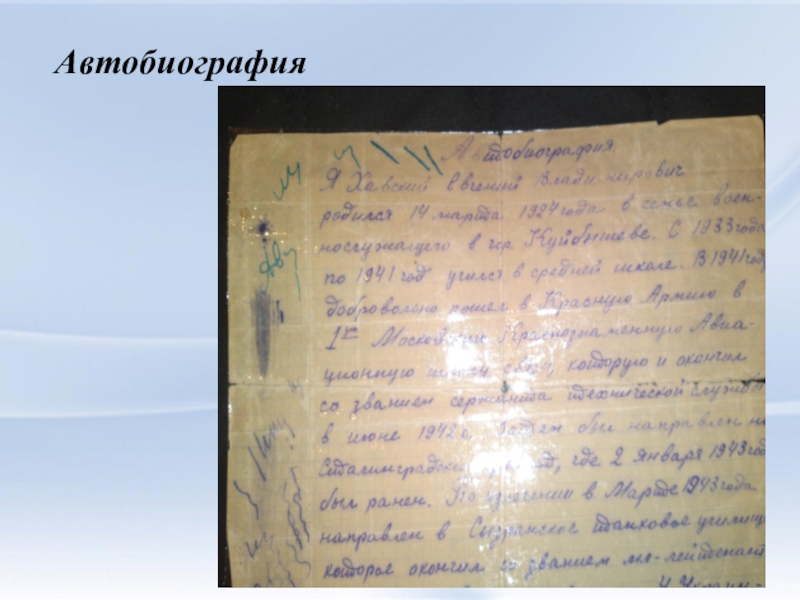 Автобиография
Автобиография.
Я Хавский Евгений Владимирович
родился 14 марта 1924 года в семье воен-
нослужащего в гор. Куйбышеве. С 1933 года
по 1941 год учился в средней школе. В 1941 год
добровольно пошел в Красную Армию в
1ю Московскую Краснознаменную Авиа-
ционную школу связи, которую и окончил
со званием сержанта технической службы
в июне 1942 г. Затем был направлен на
Сталинградский где 2 января 1943 год
был ранен. По излечении в Марте 1943 года
направлен в Сызранское танковое училище
которое окончил со званием мл-лейтенант